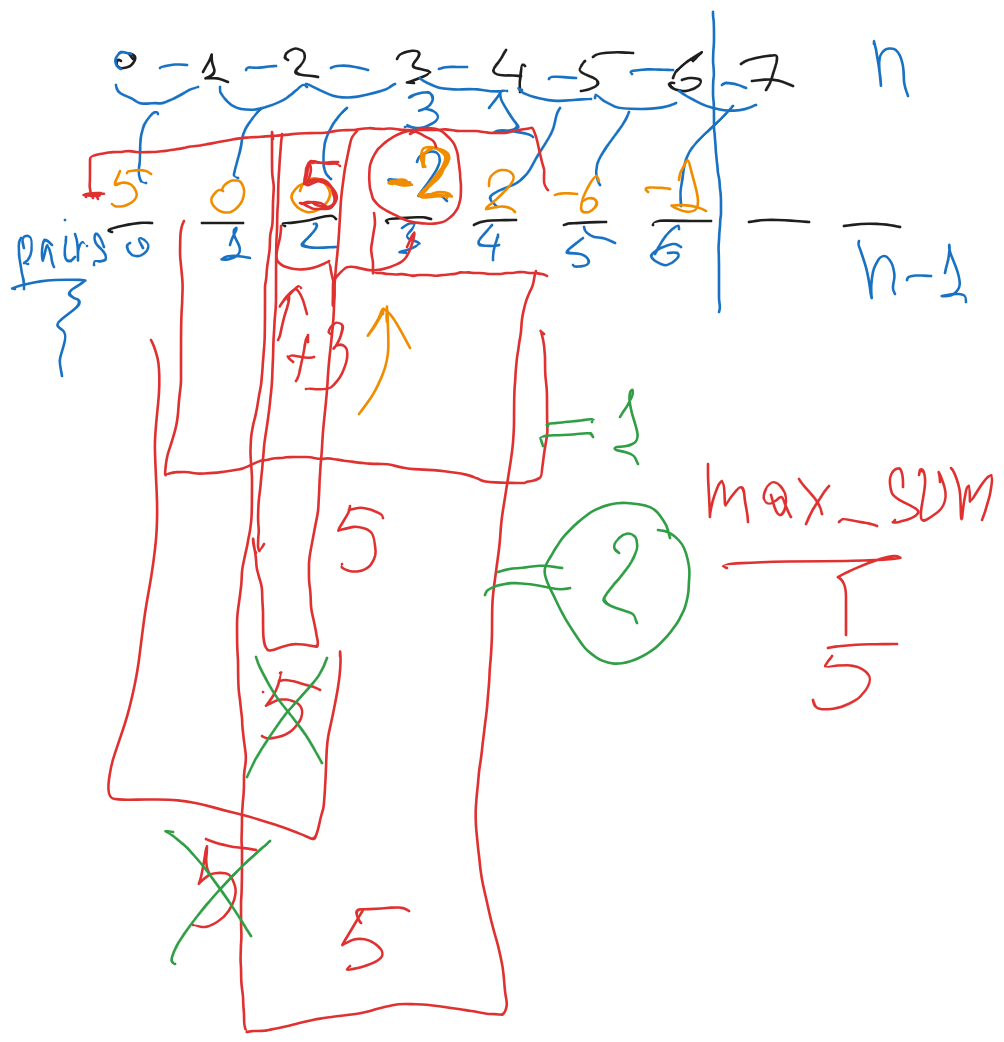 0 - 1 - 2 - 3 - 4 - 5 - 6 - 7 n
3
5 0 5 -2 2 -6 -1
pairs 0 1 2 3 4 5 6 n-1
+3
= 1
max_sum
5
= 2
5
5
5
5